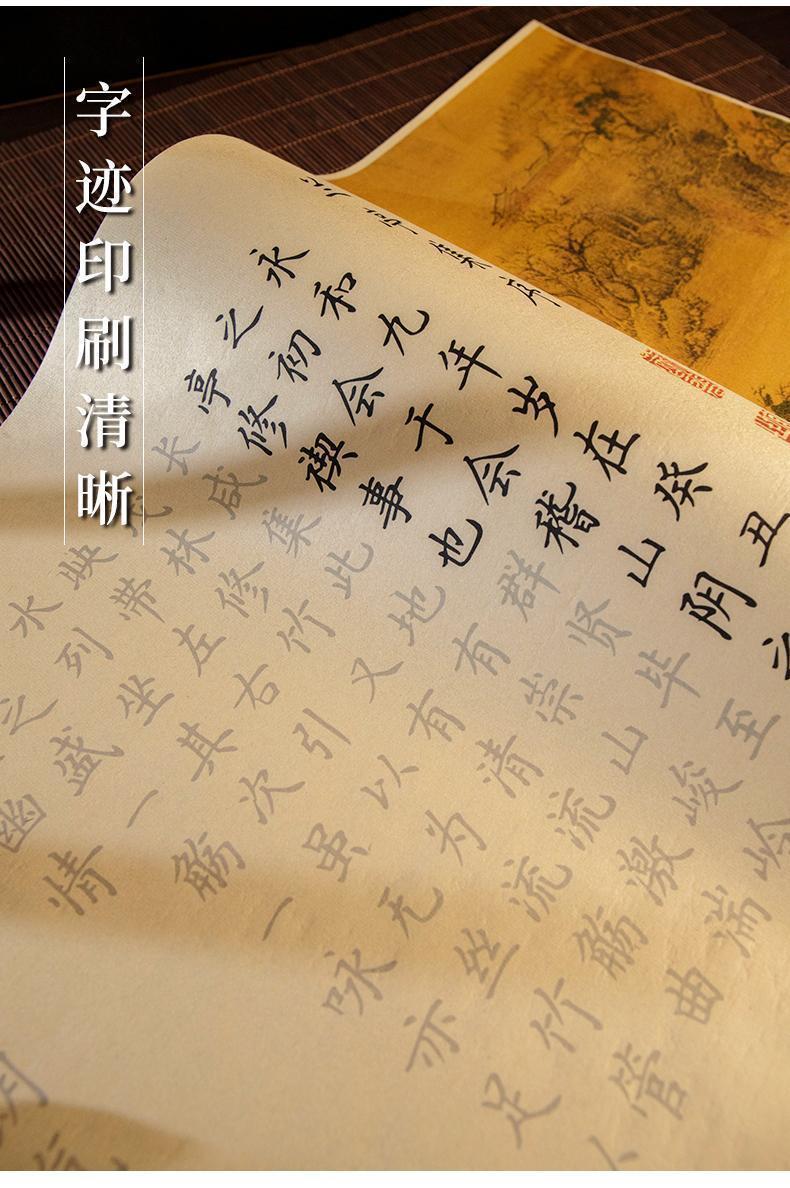 字迹印刷清晰
永和九年岁在癸丑
之初会于会稽山阴之
亭修禊事也群贤毕至
长咸集此地有崇山峻岭
茂林修竹又有清流激湍
映带左右引以为流觞曲
水列坐其次虽无丝竹管
之盛一觞一咏亦足以
幽情